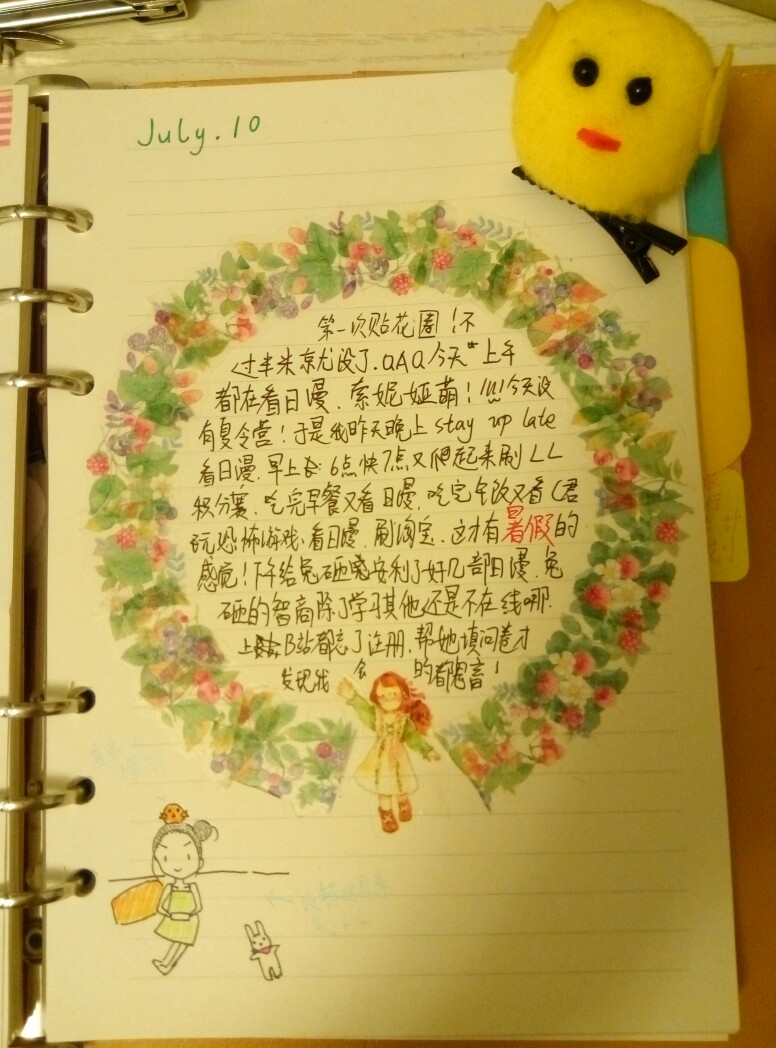 July.10
第一次贴花圈！不
过半米就没了.QAQ今天上午
都在看日漫.索妮娅萌！!!!今天没
有夏令营！于是我昨天晚上 stay up late
看日漫.早上 6点快7点又爬起来刷LL
积分赛.吃完早餐又看日漫.吃完午饭又看
玩恐怖游戏.看日漫.刷淘宝.这才有暑假的
感觉！下午给兔砸安利了好几部日漫.兔
砸的智商除了学习其他还是不在线哪.
上B站都忘了注册.帮她填问卷才
发现我会的都忘